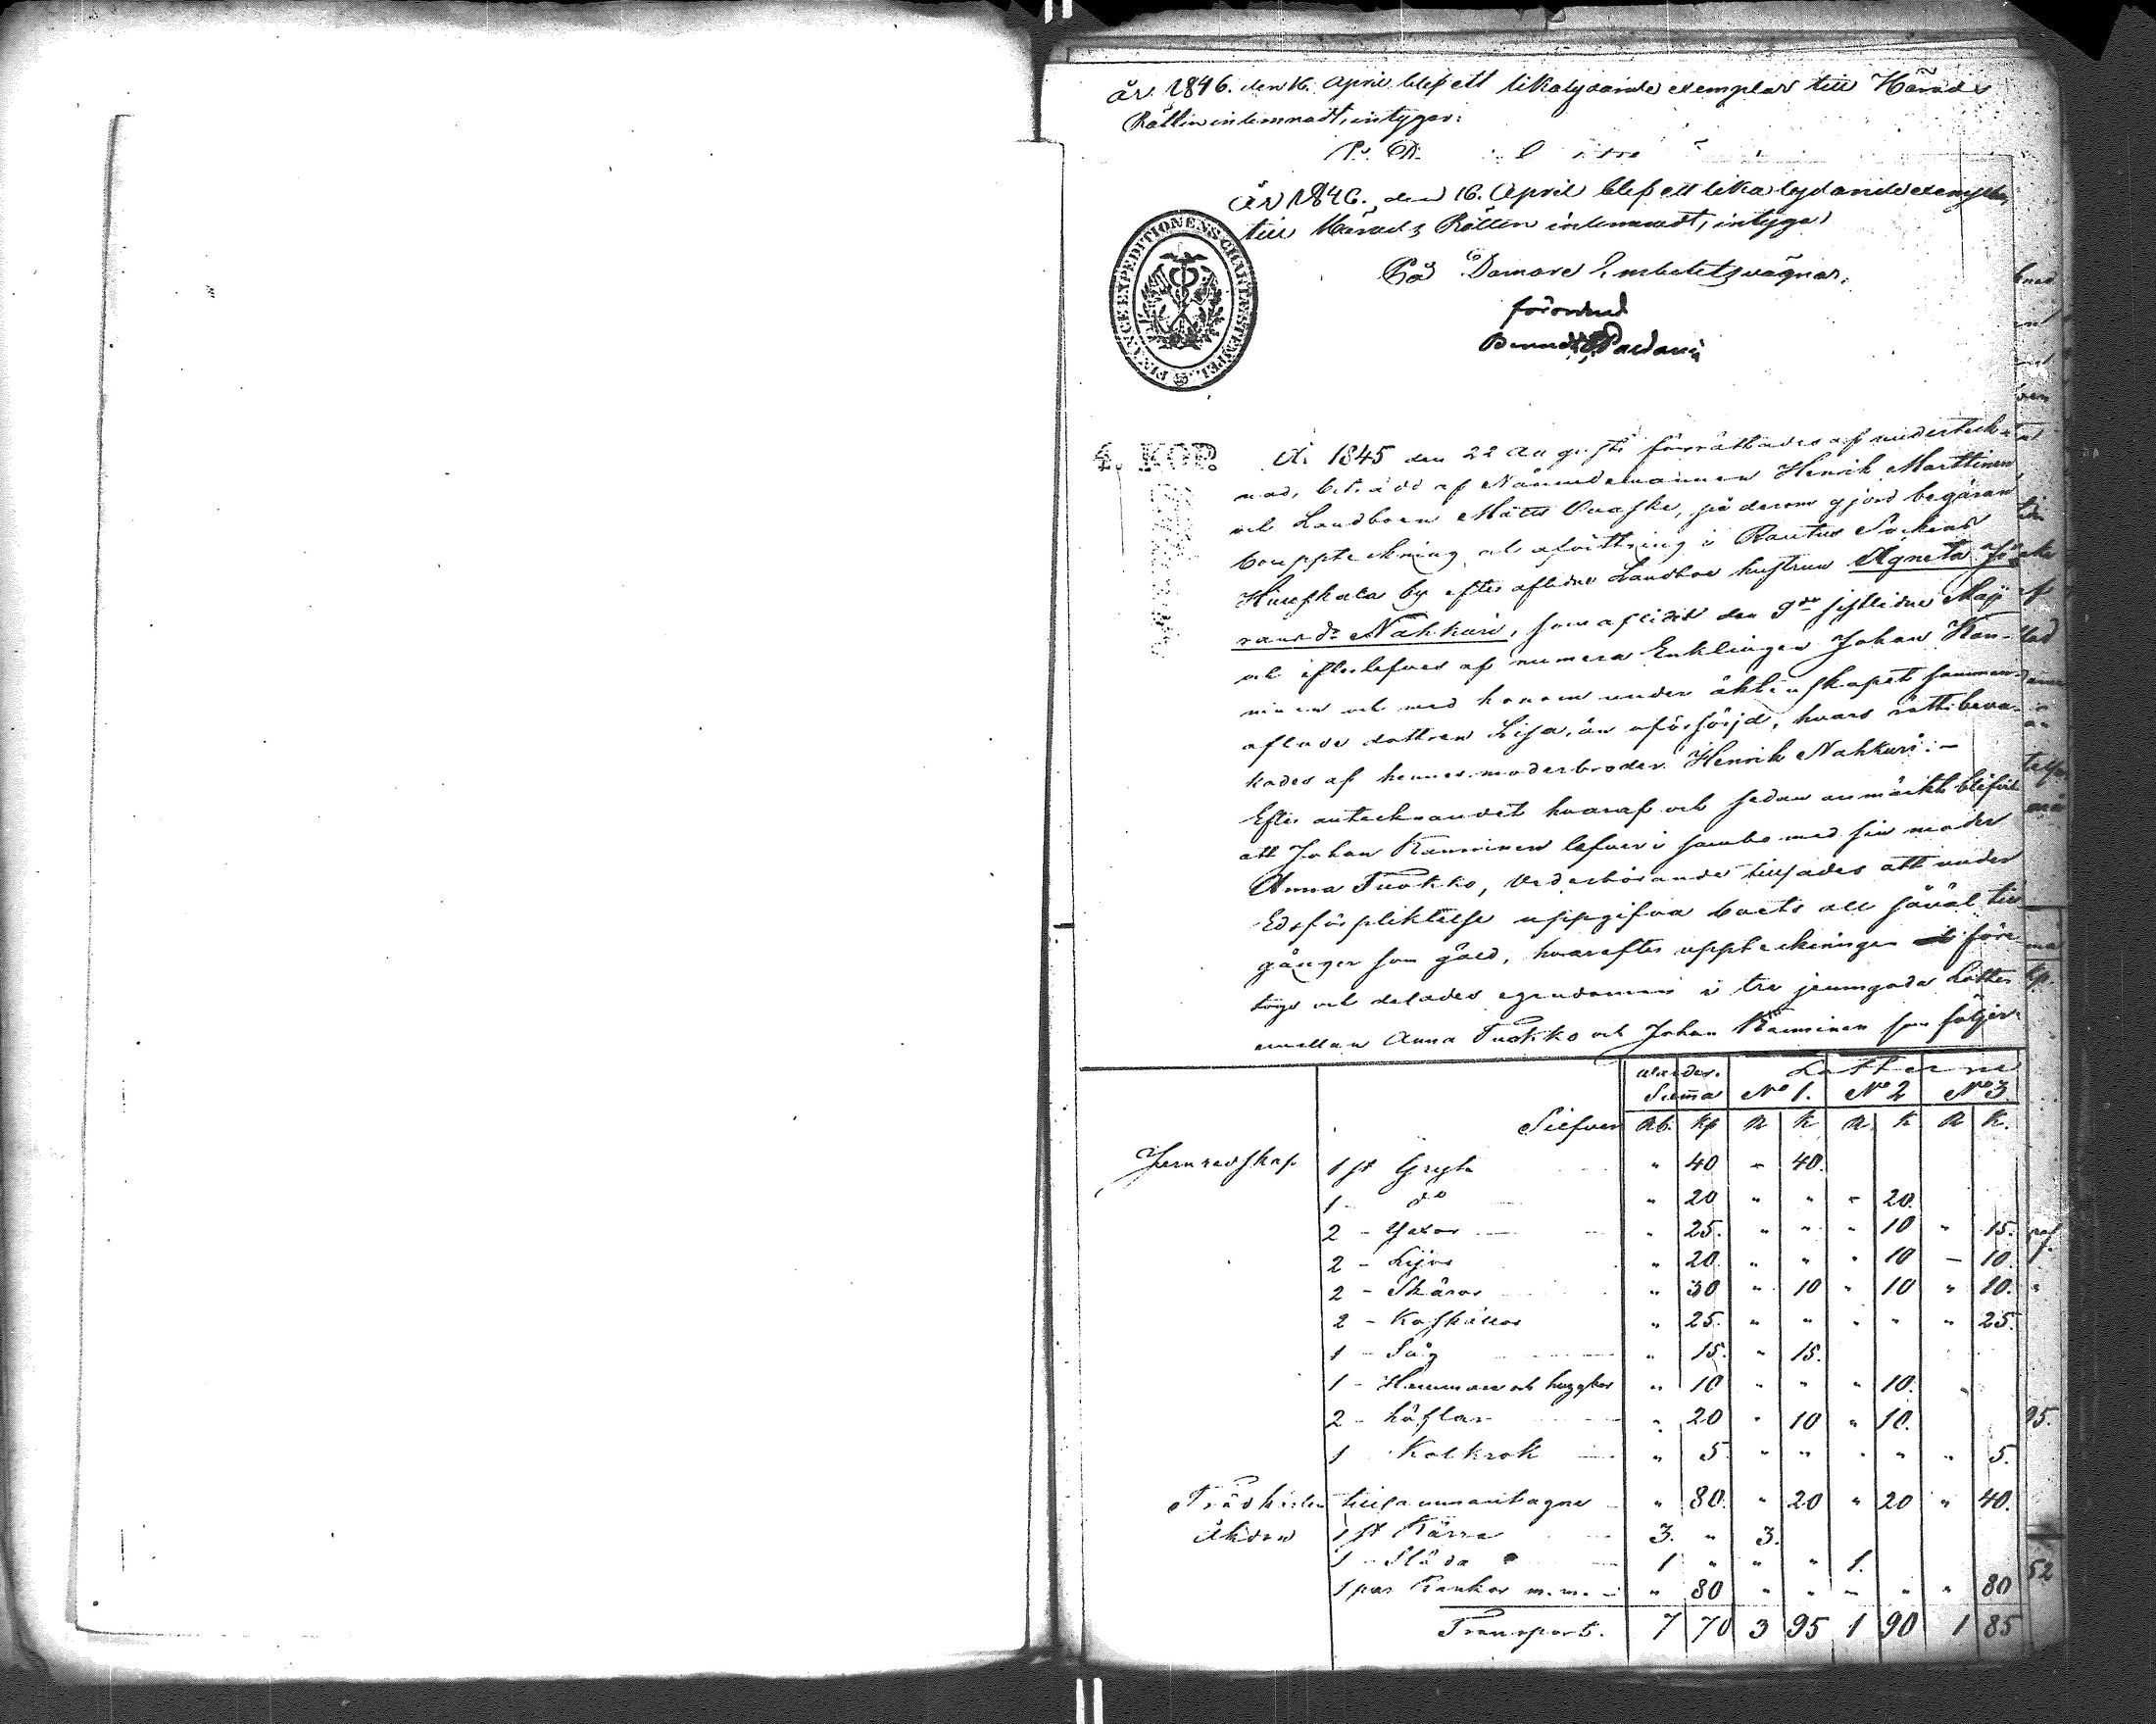 år 1846. den 16. April blef ett likalydande exemplar till Härads
Rätten inlemnadt, intygar:
År 1846. den 16. April blef ett lika lydande exemplar
till Härads Rätten inlemnadt, intygar
På Domare Embetets vägnar.
förordnad
FINANCE EXPEDITIONENS CHARTÆ STEMPEL
4. KOP.
År 1845 den 22 Augusti förrättades af underteck-
nad, biträdd af Nämndemannen Henrik Marttinen
och Landboen Matts, på derom gjord begäran
bouppteckning och afvittring i Rautus Sockens
by efter aflidne Landboe hustrun Agneta
Nahkuri, som aflidit den 9de sistlidne Maji
och efterlefves af numera Enklingen Johan Kan-
ninen och med honom under äktenskapet samman-
aflade dottren Lisa, än oförsörjd, hvars rätt beva-
kades af hennes moderbroder Henrik Nahkuri.—
Efter antecknandet hvaraf och sedan anmärkt blifvit
att Johan Kanninen lefver i sambo med sin moder
Anna Tuokko, Vederbörande tillsades att under
Edsförpliktelse uppgifva boets all såväl till-
gånger som gäld, hvarefter uppteckningen före-
togs och delades egendomen i tre jemngoda Lotter
emellan Anna Tuokko och Johan Kanninen som följer:
Värdes. Lotterne
Summa No 1. No 2 No 3
Silfver Rb. Kp R K R K R K.
Jernredskap 1 st Gryta " 40 " 40.
1 - do " 20 " " " 20.
2 - Yxor " 25. " " " 10 " 15.
2 - Lijor " 20 " " " 10 - 10.
2 - Skäror " 30 " 10 " 10 " 10.
2 - " 25. " " " " " 25.
1 - Såg " 15. " 15.
1 - Hammare och " 10 " " " 10.
2 - " 20 " 10 " 10.
1 Kolkrok " 5 " " " " " 5.
Trädkärlen tillsammantagne " 80. " 20 " 20 " 40.
Åkdon 1 st Kärra 3. " 3.
1 - Släda 1 " " " 1.
1 par m.m. " 80 " " " " " 80
Transport. 7 70 3 95 1 90 1 85